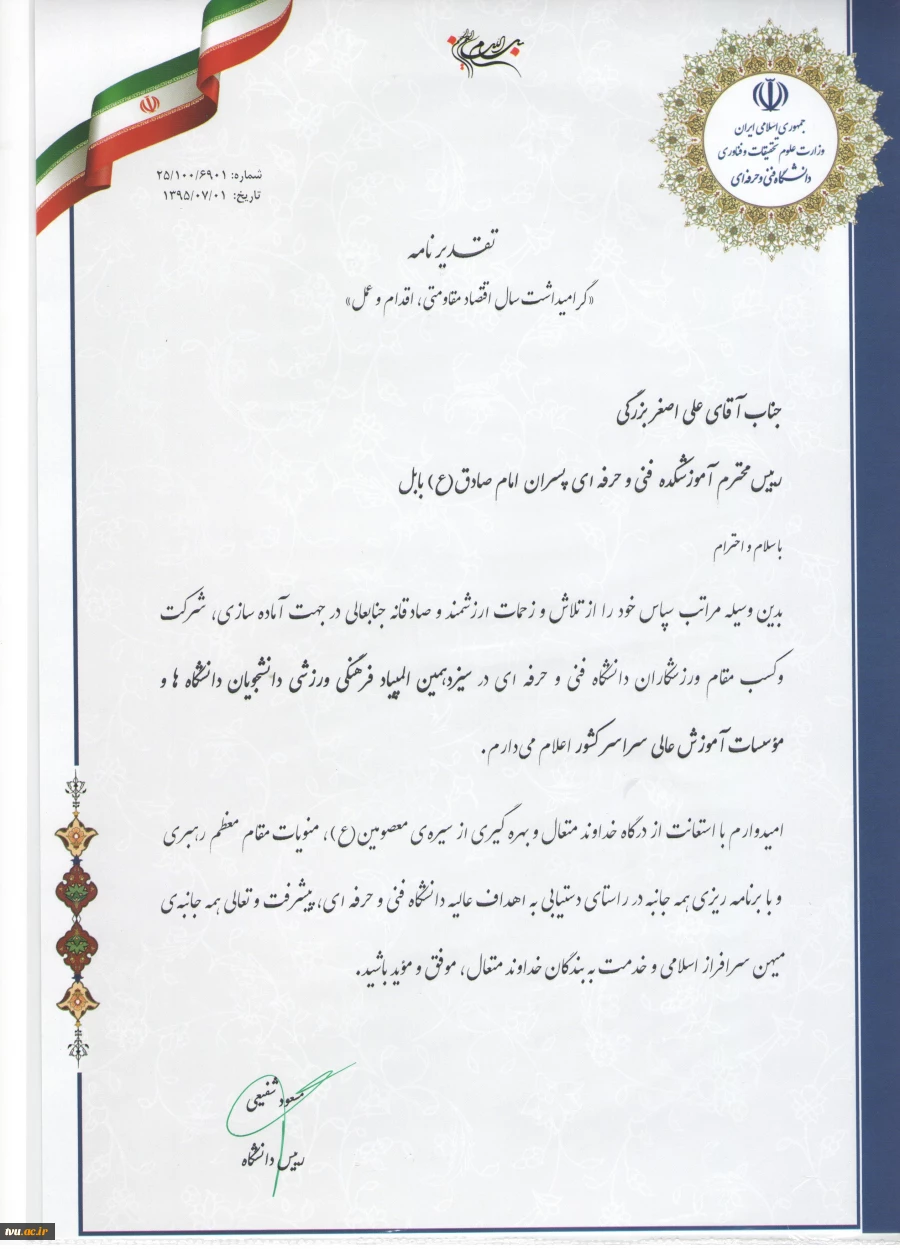 بسم الله الرحمن الرحیم
جمهوری اسلامی ایران
وزارت علوم تحقیقات و فناوری
دانشگاه فنی و حرفه‌ای
شماره: ۲۵/۱۰۰/۶۹۰۱
تاریخ: ۱۳۹۵/۰۷/۰۱
تقدیر نامه
«گرامیداشت سال اقتصاد مقاومتی، اقدام و عمل»
جناب آقای علی اصغر بزرگی
رییس محترم آموزشکده فنی و حرفه ای پسران امام صادق(ع) بابل
با سلام و احترام
بدین وسیله مراتب سپاس خود را از تلاش و زحمات ارزشمند و صادقانه جنابعالی در جهت آماده سازی، شرکت
و کسب مقام ورزشکاران دانشگاه فنی و حرفه ای در سیزدهمین المپیاد فرهنگی ورزشی دانشجویان دانشگاه ها و
مؤسسات آموزش عالی سراسر کشور اعلام می‌دارم.
امیدوارم با استعانت از درگاه خداوند متعال و بهره گیری از سیره‌ی معصومین(ع)، منویات مقام معظم رهبری
و با برنامه ریزی همه جانبه در راستای دستیابی به اهداف عالیه دانشگاه فنی و حرفه ای، پیشرفت و تعالی همه جانبه‌ی
میهن سرافراز اسلامی و خدمت به بندگان خداوند متعال، موفق و مؤید باشید.
مسعود شفیعی
رییس دانشگاه
tvu.ac.ir